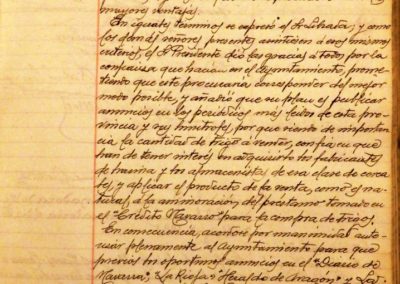 mayores ventajas.
En iguales terminos se expresó el Sr Estrada, y como
los demás señores presente asintiesen á esos mismos
criterios, el Sr Presidente dió las gracias á todos, por la
confianza que hacian en el Ayuntamiento, prome-
tiendo que este procuraria corresponder del mejor
modo posible, y añadió que su plan es publicar
anuncios en los periódicos más leidos de esta pro-
vincia y sus limitrofes, por que siendo de importan-
cia la cantidad de trigo á vender, confia en que
han de tener interés en adquirirlo los fabricantes
de harina y los almacenistas de esa clase de cerea-
les, y aplicar el producto de la venta, como es na-
tural, á la aminoración del préstamo tomado en
el "Crédito Navarro" para la compra de trigos.
En consecuencia, acordose por unanimidad auto-
rizar plenamente al Ayuntamiento para que
previos los oportunos anuncios en el "Diario de
Navarra", "La Rioja", "Heraldo de Aragón" y